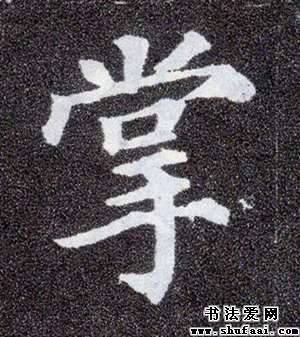 掌
书法爱网
www.shufaai.com